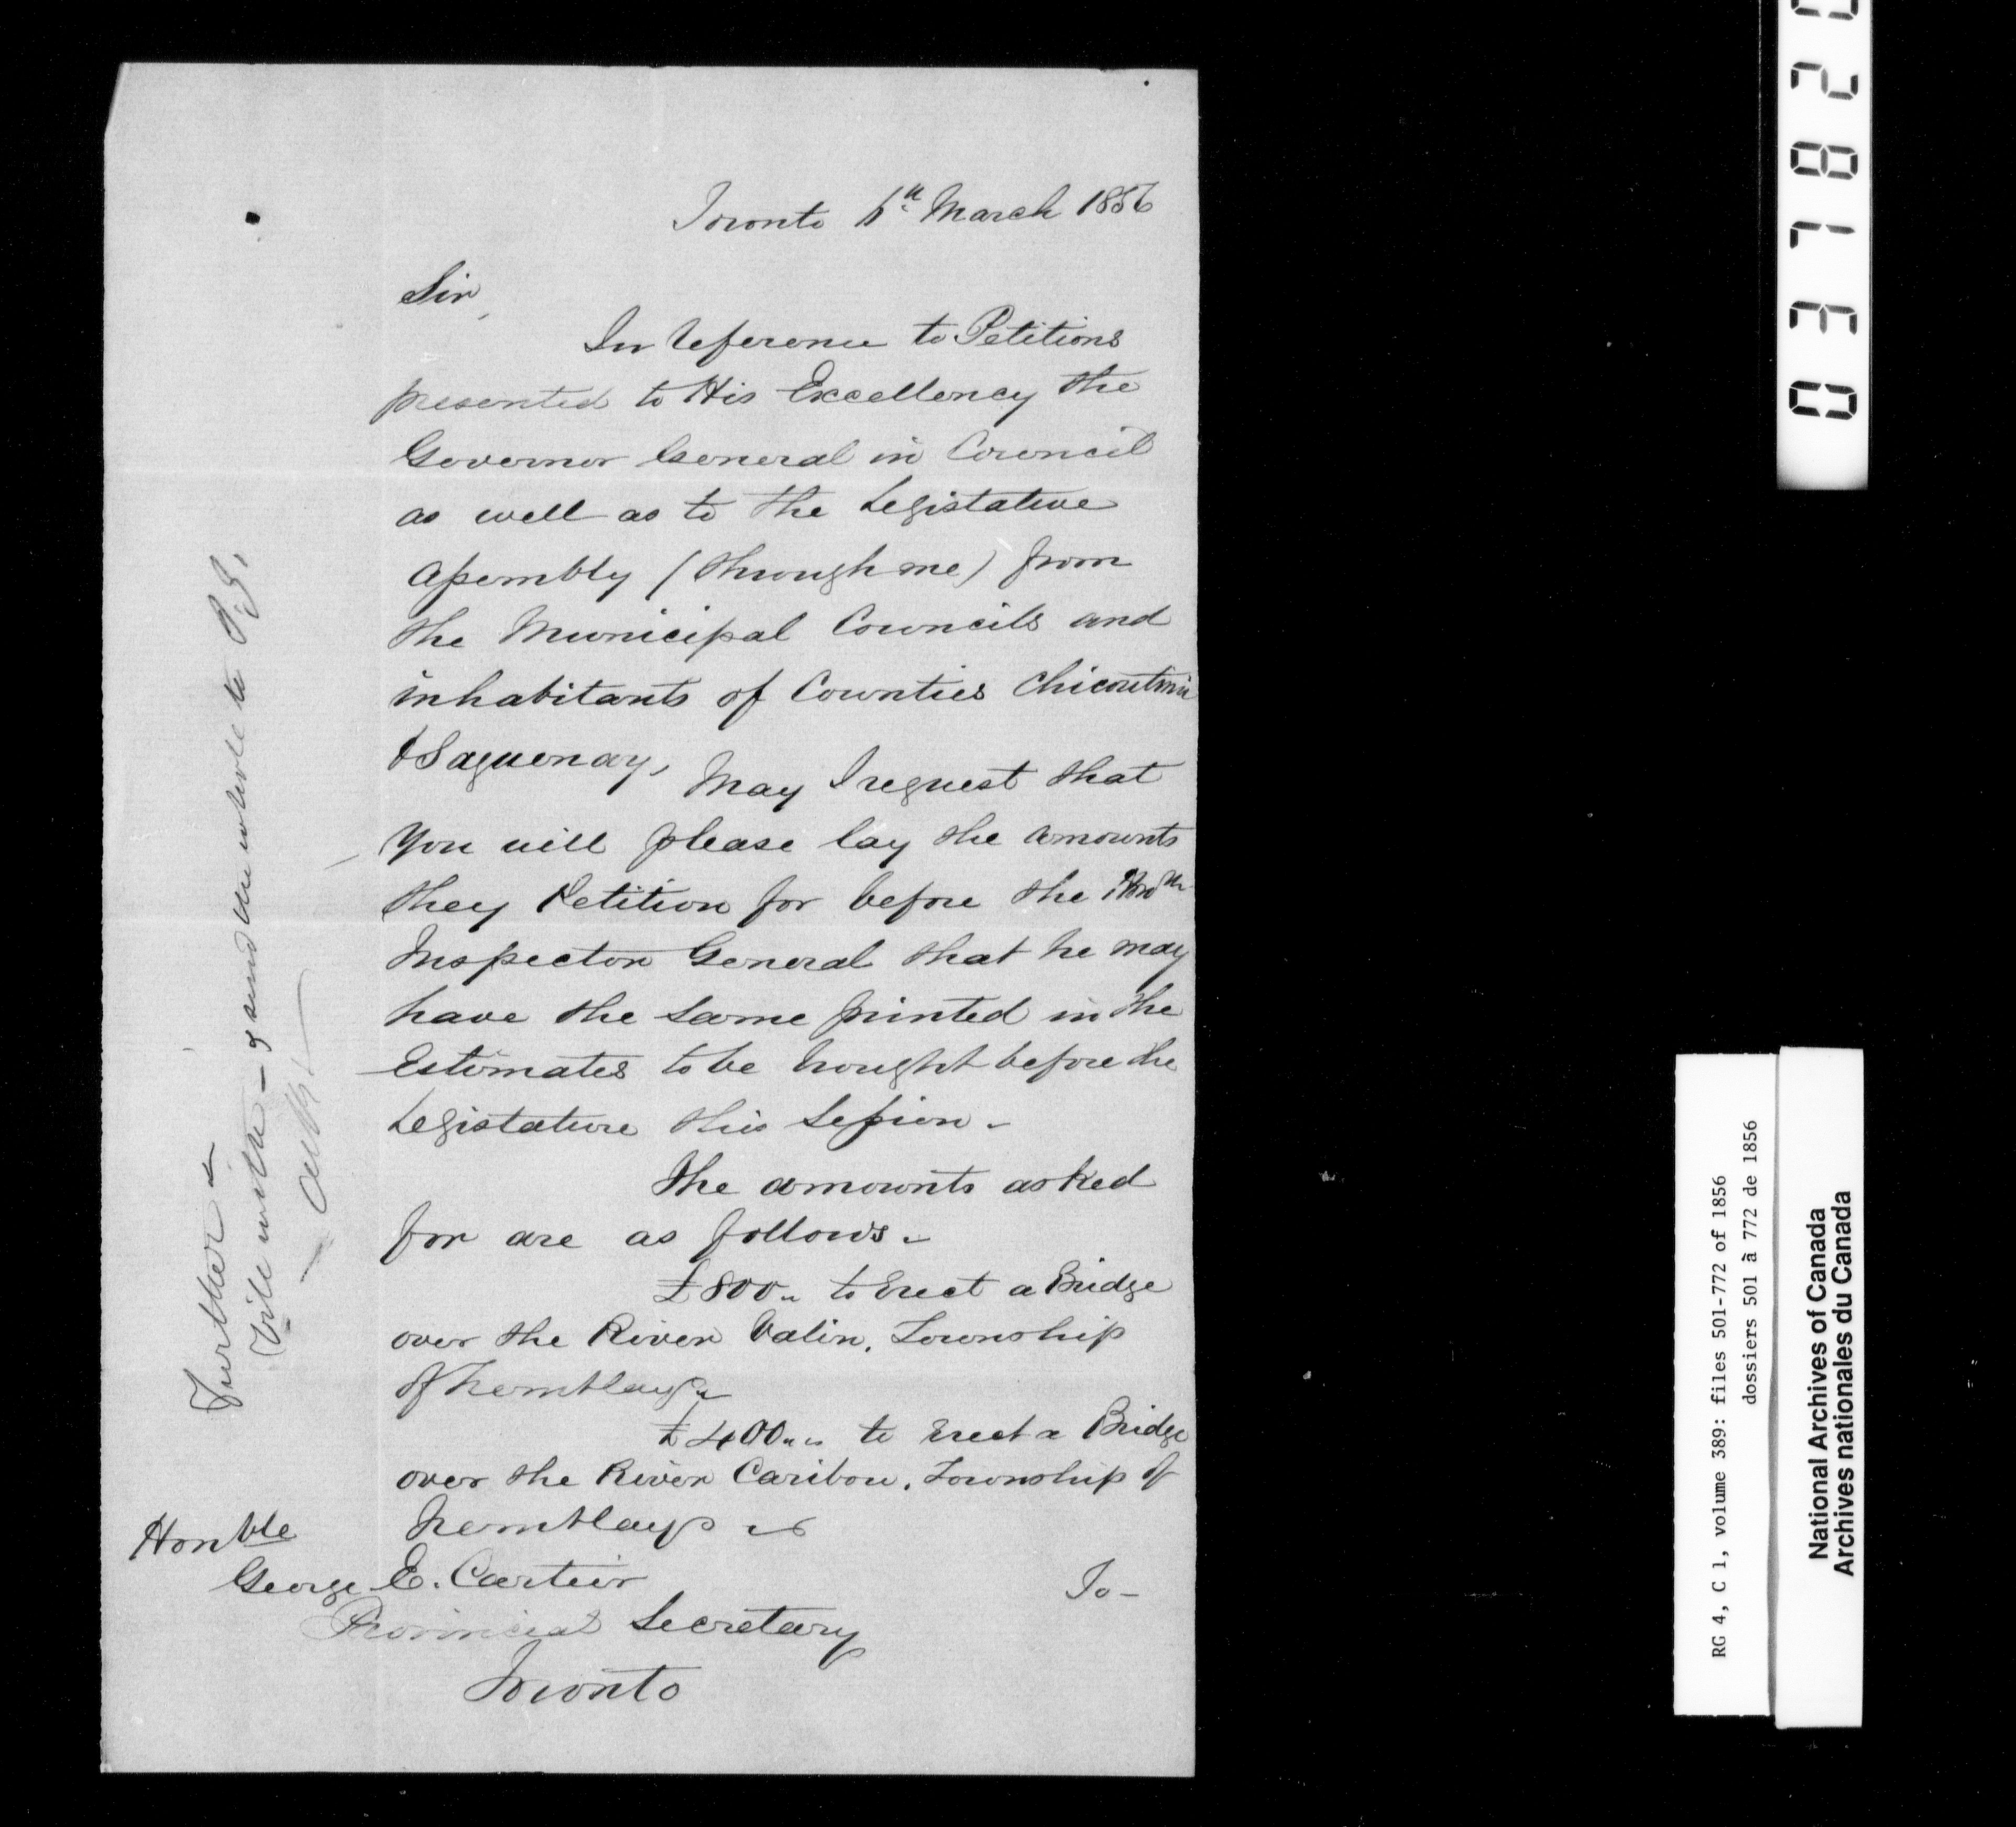 Toronto 6th March 1856
Sir,
In reference to Petitions
presented to His Excellency the
Governor General in Council
as well as to the Legislative
Assembly (through me) from
the Municipal Councils and
inhabitants of Counties Chicoutimi
& Saguenay, May I request that
you will please lay the amounts
they Petition for before the Honble
Inspector General that he may
have the same printed in the
Estimates to be brought before the
Legislature this Session.
The amounts asked
for are as follows.
£800 to Erect a Bridge
over the River Valin, Township
of Tremblay
£400 to Erect a Bridge
over the River Caribou, Township of
Tremblay
Honble
George E. Cartier
Provincial Secretary
Toronto
To-
Further
& send the whole to
037820
RG 4, C 1, volume 389: files 501-772 of 1856
dossiers 501 à 772 de 1856
National Archives of Canada
Archives nationales du Canada